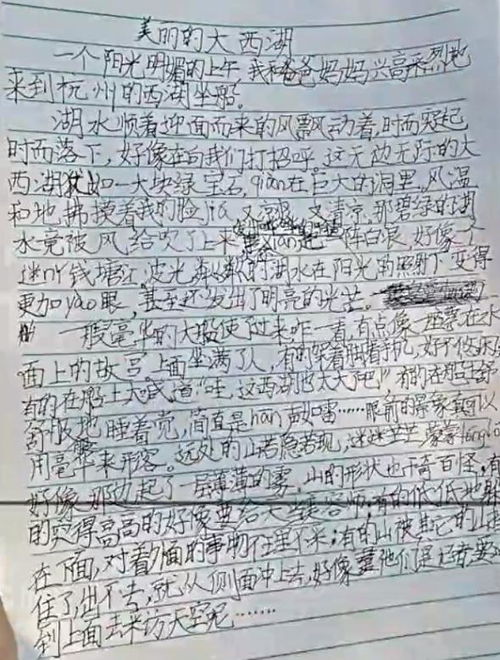 美丽的大西湖
一个阳光明媚的上午,我和爸爸妈妈兴高采烈地
来到杭州的西湖坐船。
湖水顺着迎面而来的风飘动着,时而突起
时而落下,好像在向我们打招呼。这无边无际的大
西湖犹如一大块绿宝石,qian在巨大的洞里,风温
和地拂摸着我的脸jia,又凉 又清凉,那碧绿的湖
水竟被风给吹了上来 xian起一阵白浪好像个
迷你钱塘江,波光粼粼的湖水在阳光的照射下变得
更加yao眼,甚至还发出了明亮的光芒。
一艘豪华的大船使了过来咋一看有点像一座寨在水
面上的故宫上面坐满了人,有的
有的在船上大喊道“哇,这西湖也太大了吧!”有的
舒服地睡着觉,简直是han声如雷……眼前的景象真可以
用豪华来形容。远处的山若隐若现,迷迷茫茫
好像那边起了一层薄薄的雾,山的形状也千奇百怪,有
的突得高高的好像要给 有的低低地
在下面,对着外面的事物不理不采;有的山被其它的山
住了,出不去,就从侧面冲上去,好像 他们
到上面去采访天空呢……